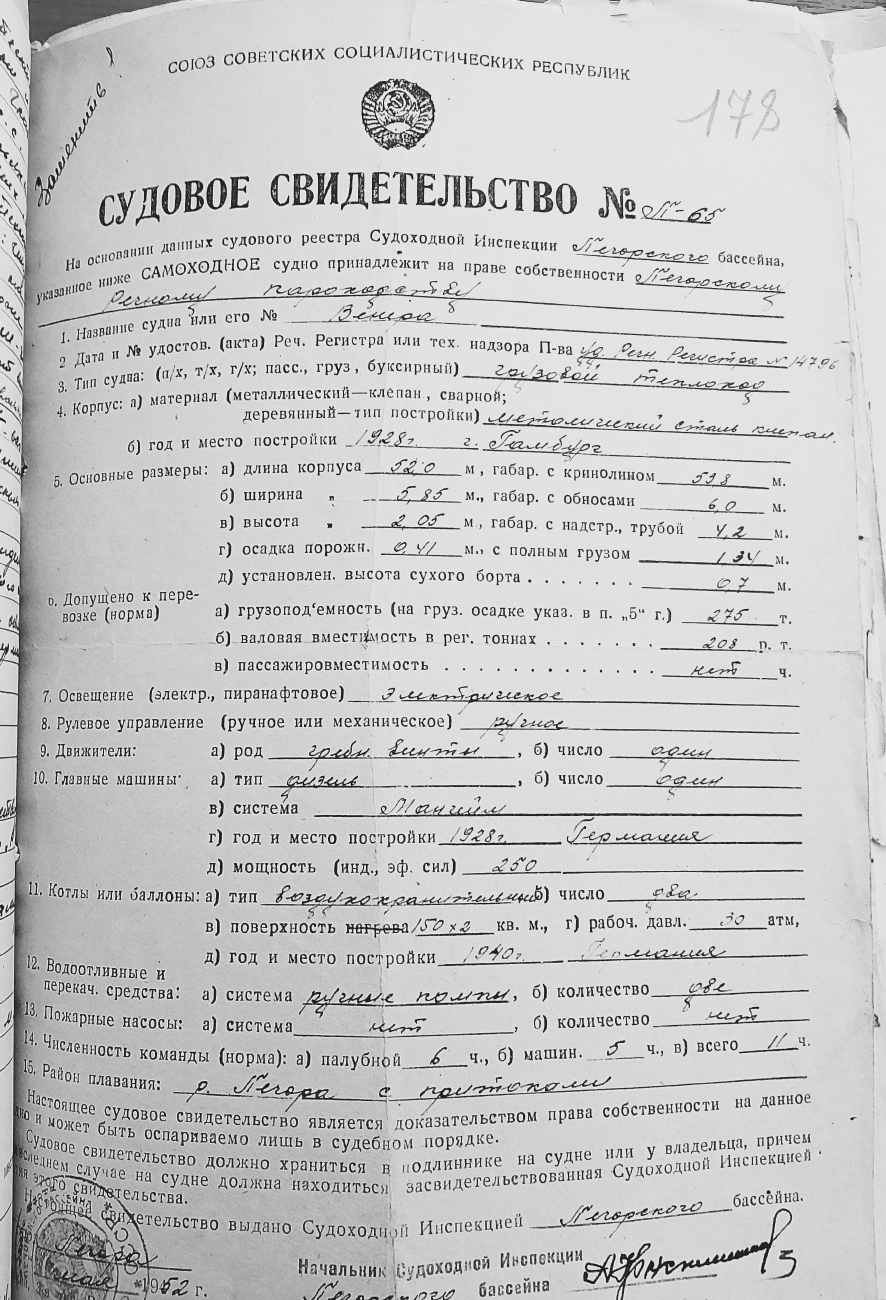 СОЮЗ СОВЕТСКИХ СОЦИАЛИСТИЧЕСКИХ РЕСПУБЛИК
178
СУДОВОЕ СВИДЕТЕЛЬСТВО № П-65
На основании данных судового реестра Судоходной Инспекции Печорского бассейна,
указанное ниже САМОХОДНОЕ судно принадлежит на праве собственности Печорскому
Речному пароходству
1. Название судна или его № Венера
2 Дата и № удостов. (акта) Реч. Регистра или тех. надзора П-ва уд. Речн. Регистра № 14796
3. Тип судна: (п/х, т/х, г/х; пасс., груз, буксирный) грузовой теплоход
4. Корпус: а) материал (металлический—клепан, сварной;
деревянный—тип постройки) металический сталь клепан.
б) год и место постройки 1928г. г. Гамбург
5. Основные размеры: а) длина корпуса 52,0 м, габар. с кринолином 53,8 м.
б) ширина „ 5,85 м., габар. с обносами 6,0 м.
в) высота „ 2,05 м, габар. с надстр., трубой 4,2 м.
г) осадка порожн. 0,41 м., с полным грузом 1,34 м.
д) установлен. высота сухого борта . . . . . . . 0,7 м.
6. Допущено к пере-
возке (норма) а) грузопод'емность (на груз. осадке указ. в п. „5“ г.) 275 т.
б) валовая вместимость в рег. тоннах . . . . . . 208 р. т.
в) пассажировместимость . . . . . . . . . . . нет ч.
7. Освещение (электр., пиранафтовое) электрическое
8. Рулевое управление (ручное или механическое) ручное
9. Движители: а) род гребн. винты, б) число один
10. Главные машины: а) тип дизель, б) число один
в) система Мангейм
г) год и место постройки 1928г. Германия
д) мощность (инд., эф. сил) 250
11. Котлы или баллоны: а) тип воздухохранительный б) число два
в) поверхность нагрева 150х2 кв. м., г) рабоч. давл. 30 атм,
д) год и место постройки 1940г. Германия
12. Водоотливные и
перекач. средства: а) система ручные помпы, б) количество две
13. Пожарные насосы: а) система нет, б) количество нет
14. Численность команды (норма): а) палубной 6 ч., б) машин. 5 ч., в) всего 11 ч.
15. Район плавания: р. Печора с притоками
Настоящее судовое свидетельство является доказательством права собственности на данное
и может быть оспариваемо лишь в судебном порядке.
Судовое свидетельство должно храниться в подлиннике на судне или у владельца, причем
последнем случае на судне должна находиться засвидетельствованная Судоходной Инспекцией
этого свидетельства.
Настоящее свидетельство выдано Судоходной Инспекцией Печорского бассейна.
Печора
мая 1952 г.
Начальник Судоходной Инспекции
Печорского бассейна